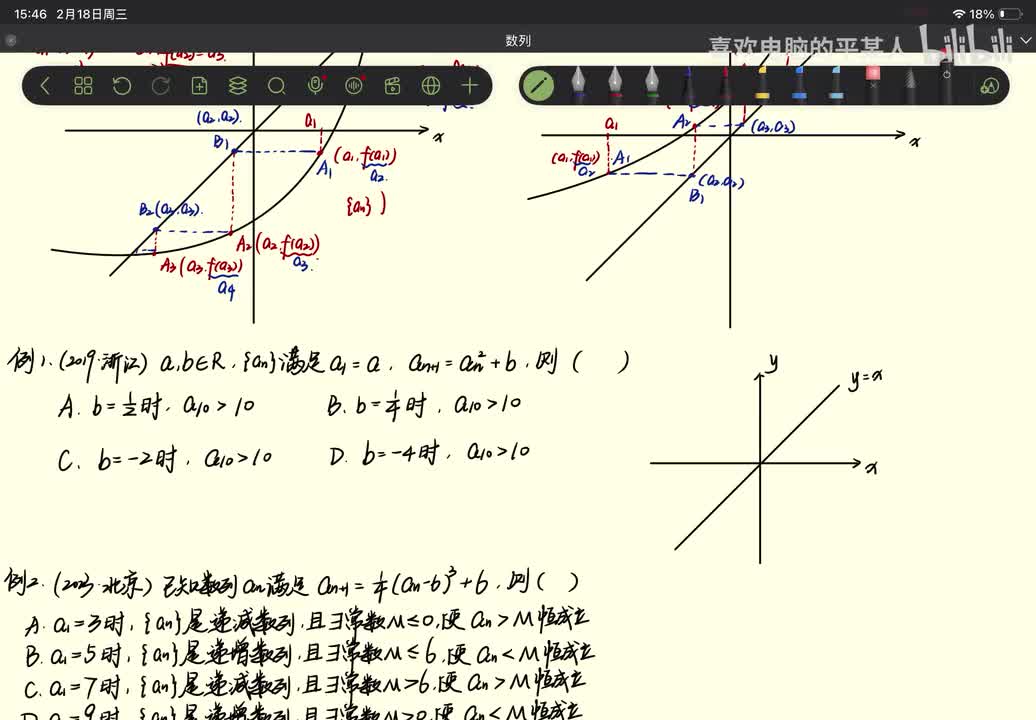 15:46 2月18日周三
18%
数列
喜欢电脑的平某人 bilibili
(a₂,a₂)
B₁
a₁
x
(a₁,f(a₁))
A₁
a₂
{aₙ}
B₂(a₃,a₃)
A₂(a₂,f(a₂))
a₃
A₃(a₃,f(a₃))
a₄
a₁
A₂
(a₃,a₃)
x
(a₁,f(a₁))
A₁
a₂
(a₂,a₂)
B₁
例1.(2019·浙江) a,b∈R,{aₙ}满足a₁=a, aₙ₊₁=aₙ²+b,则( )
A. b=½时, a₁₀>10
B. b=¼时, a₁₀>10
C. b=-2时, a₁₀>10
D. b=-4时, a₁₀>10
y
y=x
x
例2.(2023·北京)已知数列aₙ满足 aₙ₊₁=¼(aₙ-6)³+6,则( )
A. a₁=3时,{aₙ}是递减数列,且∃常数M≤0,使aₙ>M恒成立
B. a₁=5时,{aₙ}是递增数列,且∃常数M≤6,使aₙ<M恒成立
C. a₁=7时,{aₙ}是递减数列,且∃常数M>6,使aₙ>M恒成立
D. a₁=9时,{aₙ}是递增数列,且∃常数M>0,使aₙ<M恒成立